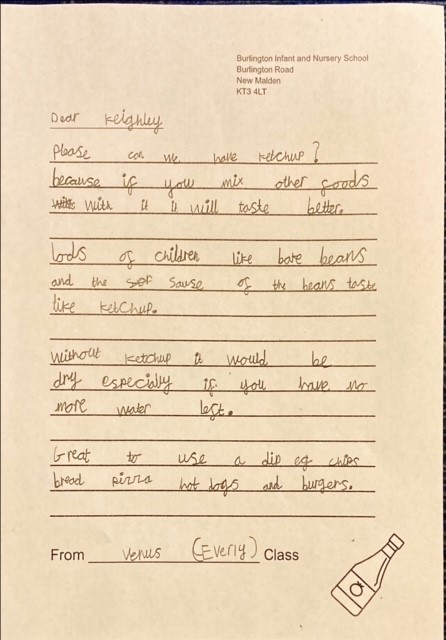 Burlington Infant and Nursery School
Burlington Road
New Malden
KT3 4LT
Dear Keighley
Please can we have ketchup?
because if you mix other foods
with it it will taste better.
lods of children like bare beans
and the sause of the beans taste
like ketchup.
without ketchup it would be
dry especially if you have no
more water left.
Great to use a dip eg chips
bread pizza hot dogs and burgers.
From Venus (Everly) Class